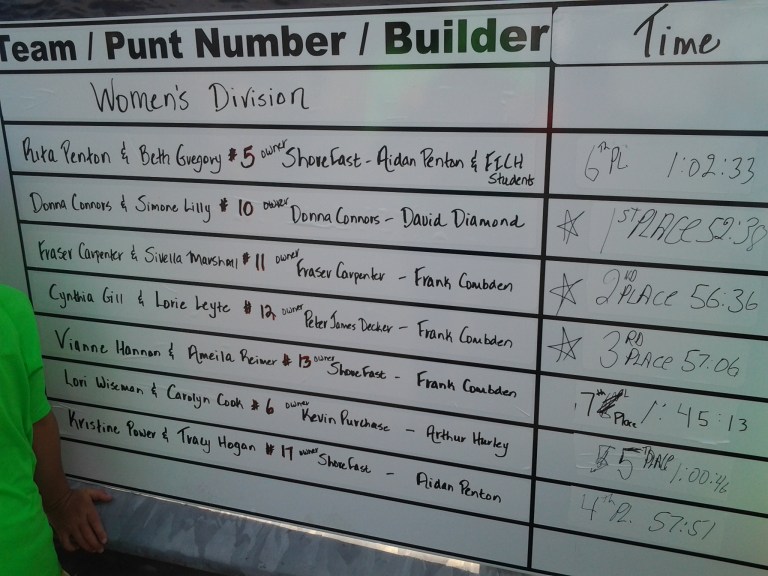 Team / Punt Number / Builder Time
Women's Division
Rita Penton & Beth Gregory #5 owner ShoreFast - Aidan Penton & FICH Students 6TH PL 1:02:33
Donna Connors & Simone Lilly #10 owner Donna Connors - David Diamond ☆ 1ST PLACE 52:38
Fraser Carpenter & Sivella Marshall #11 owner Fraser Carpenter - Frank Combden ☆ 2ND PLACE 56:36
Cynthia Gill & Lorie Leyte #12 owner Peter James Decker - Frank Combden ☆ 3RD PLACE 57:06
Vianne Hannon & Ameila Reimer #13 owner ShoreFast - Frank Combden 7th Place 1:45:13
Lori Wiseman & Carolyn Cook #6 owner Kevin Purchase - Arthur Hurley 5TH PLACE 1:00:46
Kristine Power & Tracy Hogan #17 owner ShoreFast - Aidan Penton 4th PL. 57:51